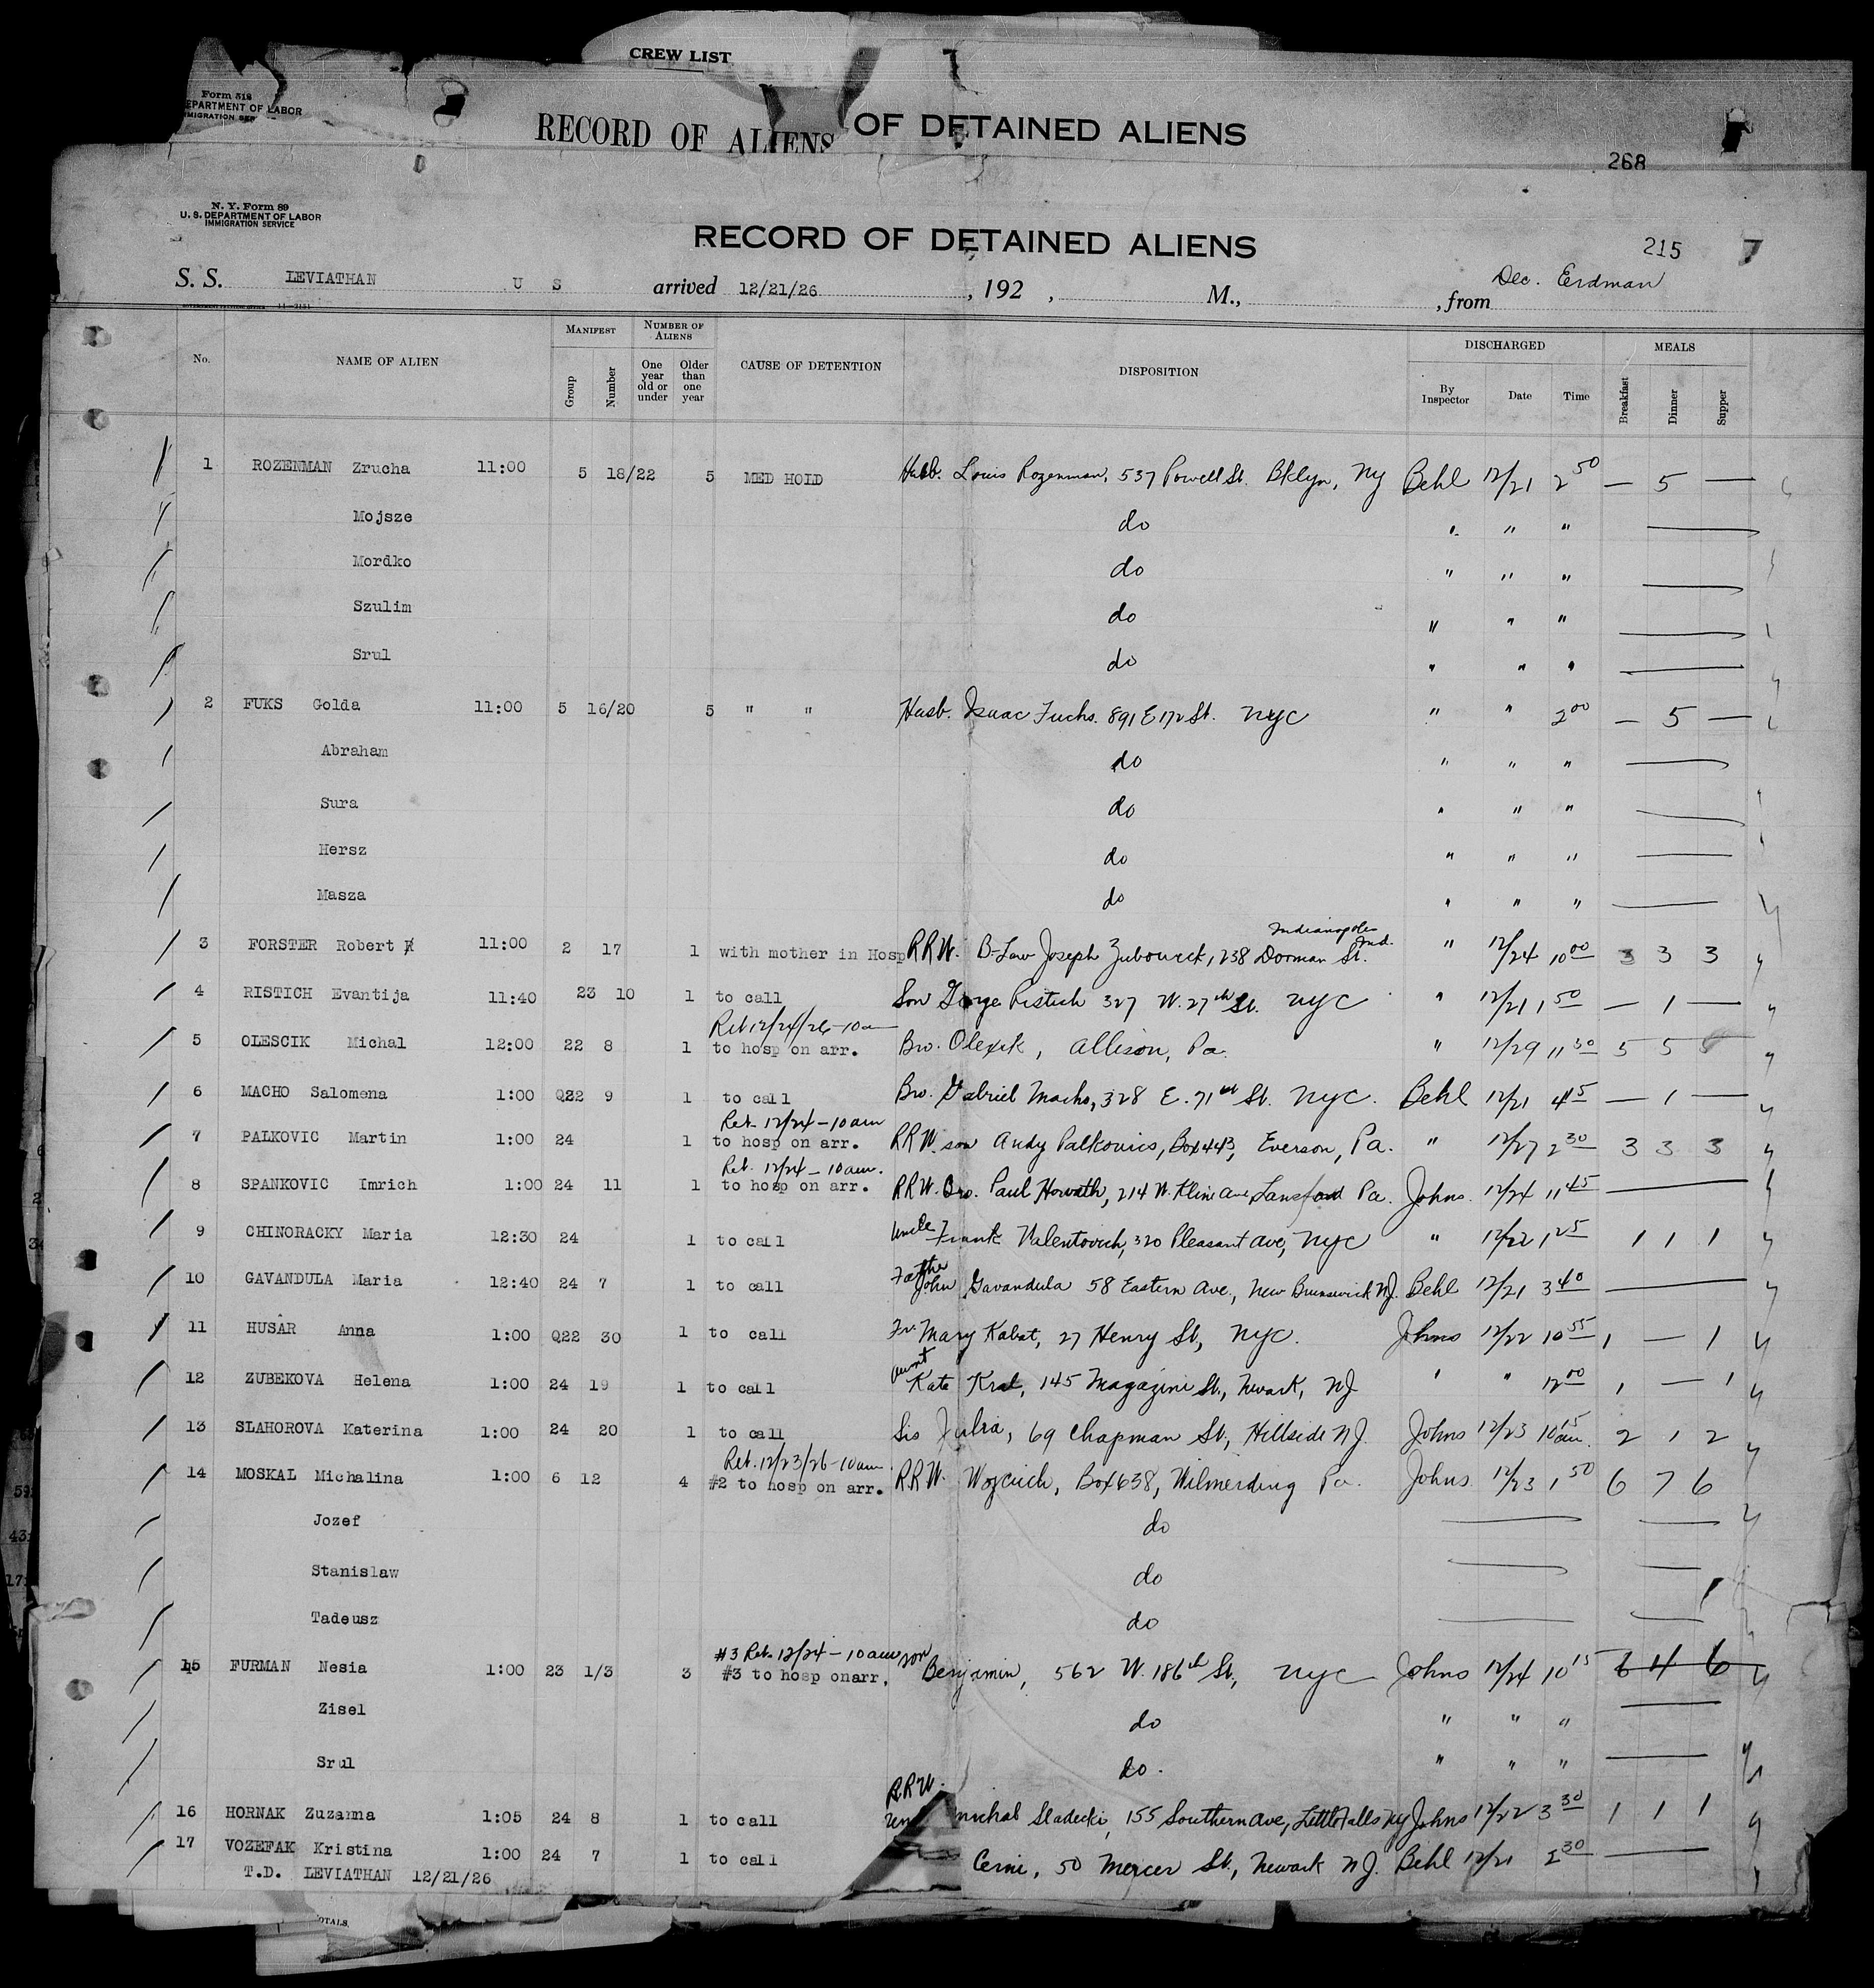 CREW LIST
Form 518
DEPARTMENT OF LABOR
IMMIGRATION SER
RECORD OF ALIENS OF DETAINED ALIENS
268
N. Y. Form 89
U. S. DEPARTMENT OF LABOR
IMMIGRATION SERVICE
RECORD OF DETAINED ALIENS
215 7
S. S. LEVIATHAN U S arrived 12/21/26 , 192 , M., , from Dec. Erdman
No. NAME OF ALIEN MANIFEST Group Number NUMBER OF ALIENS One year old or under Older than one year CAUSE OF DETENTION DISPOSITION DISCHARGED By Inspector Date Time MEALS Breakfast Dinner Supper
1 ROZENMAN Zrucha 11:00 5 18/22 5 MED HOLD Husb. Louis Rozenman, 537 Powell St. Bklyn, NY Behl 12/21 2 50 — 5 —
Mojsze do " " "
Mordko do " " "
Szulim do " " "
Srul do " " "
2 FUKS Golda 11:00 5 16/20 5 " " Husb. Isaac Fuchs. 891 E 172 St. NYC " " 2 00 — 5 —
Abraham do " " "
Sura do " " "
Hersz do " " "
Masza do " " "
Indianapolis
3 FORSTER Robert 11:00 2 17 1 with mother in Hosp RRW. B-Law Joseph Zubovick, 1238 Dorman St. Ind. " 12/24 10 00 3 3 3
4 RISTICH Evantija 11:40 23 10 1 to call Son George Ristich 327 W. 27th St. NYC " 12/21 1 50 — 1 —
Ret 12/24/26-10am
5 OLESCIK Michal 12:00 22 8 1 to hosp on arr. Bro. Olexik, Allison, Pa. " 12/29 11 30 5 5 5
6 MACHO Salomena 1:00 Q22 9 1 to call Bro. Gabriel Macho, 328 E. 71st St. NYC. Behl 12/21 4 15 — 1 —
Ret. 12/24-10am
7 PALKOVIC Martin 1:00 24 1 to hosp on arr. RRW. son Andy Palkovics, Box 443, Everson, Pa. " 12/27 2 30 3 3 3
Ret. 12/24-10am.
8 SPANKOVIC Imrich 1:00 24 11 1 to hosp on arr. RRW. Bro. Paul Horvath, 214 W. Kline Ave Lansford Pa. Johns. 12/24 11 45
9 CHINORACKY Maria 12:30 24 1 to call Uncle Frank Valentovich, 320 Pleasant Ave, NYC " 12/22 1 25 1 1 1
10 GAVANDULA Maria 12:40 24 7 1 to call Father John Gavandula 58 Eastern Ave., New Brunswick NJ. Behl 12/21 3 40
11 HUSAR Anna 1:00 Q22 30 1 to call Fr. Mary Kabat, 27 Henry St, NYC. Johns 12/22 10 55 1 — 1
12 ZUBEKOVA Helena 1:00 24 19 1 to call Aunt Kate Kral, 145 Magazine St., Newark, NJ " " 12 00 1 — 1
13 SLAHOROVA Katerina 1:00 24 20 1 to call Sis Julia, 69 Chapman St, Hillside NJ. Johns 12/23 10 15 am. 2 1 2
Ret. 12/23/26-10am
14 MOSKAL Michalina 1:00 6 12 4 #2 to hosp on arr. RRW. Wojcich, Box 638, Wilmerding Pa. Johns 12/23 1 50 6 7 6
Jozef do
Stanislaw do
Tadeusz do
#3 Ret. 12/24-10am
15 FURMAN Nesia 1:00 23 1/3 3 #3 to hosp onarr. son Benjamin, 562 W. 186th St., NYC Johns 12/24 10 15 6 4 6
Zisel do " " "
Srul do. " " "
RRW.
16 HORNAK Zuzanna 1:05 24 8 1 to call Michal Sladecki, 155 Southern Ave, Little Falls NY Johns 12/22 3 30 1 1 1
17 VOZEFAK Kristina 1:00 24 7 1 to call Cerni, 50 Mercer St., Newark NJ. Behl 12/21 30
T.D. LEVIATHAN 12/21/26
OTALS.